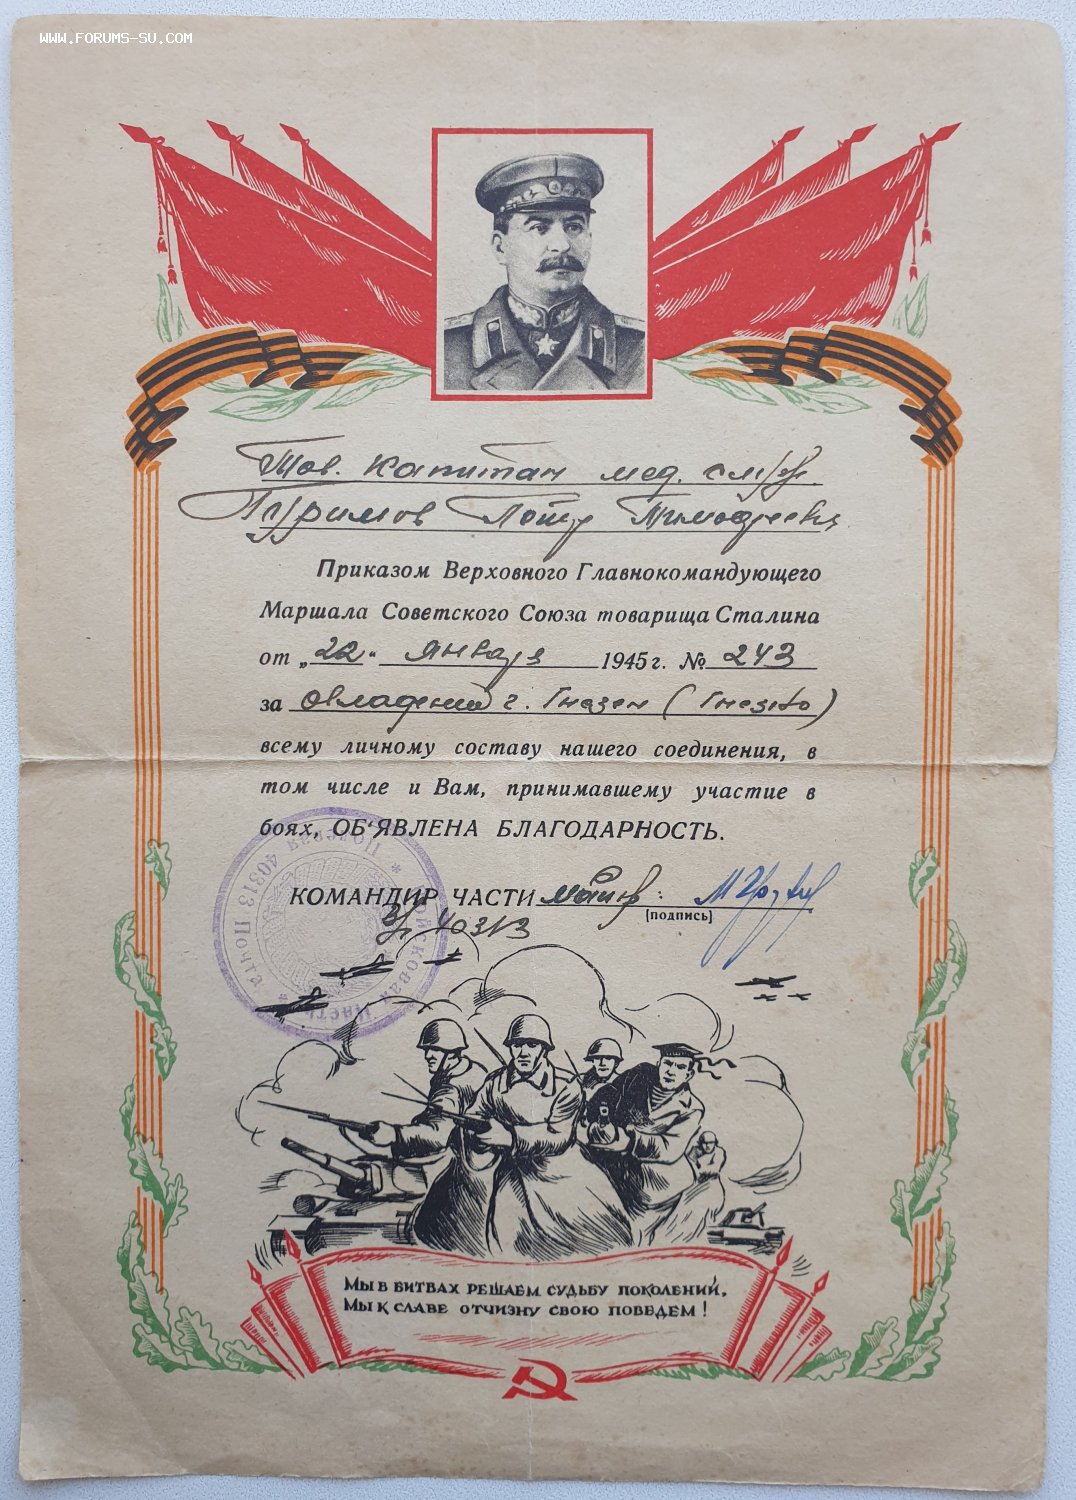 WWW.FORUMS-SU.COM
Тов. капитан мед. служ.
Тимофеевич
Приказом Верховного Главнокомандующего
Маршала Советского Союза товарища Сталина
от „22“ Января 1945 г. № 243
за овладений г. Гнезен (Гнезно)
всему личному составу нашего соединения, в
том числе и Вам, принимавшему участие в
боях, ОБ'ЯВЛЕНА БЛАГОДАРНОСТЬ.
КОМАНДИР ЧАСТИ майор:
[подпись]
40313
* Войсковая часть * Полевая 40313 Почта
Мы в битвах решаем судьбу поколений,
Мы к славе отчизну свою поведем!